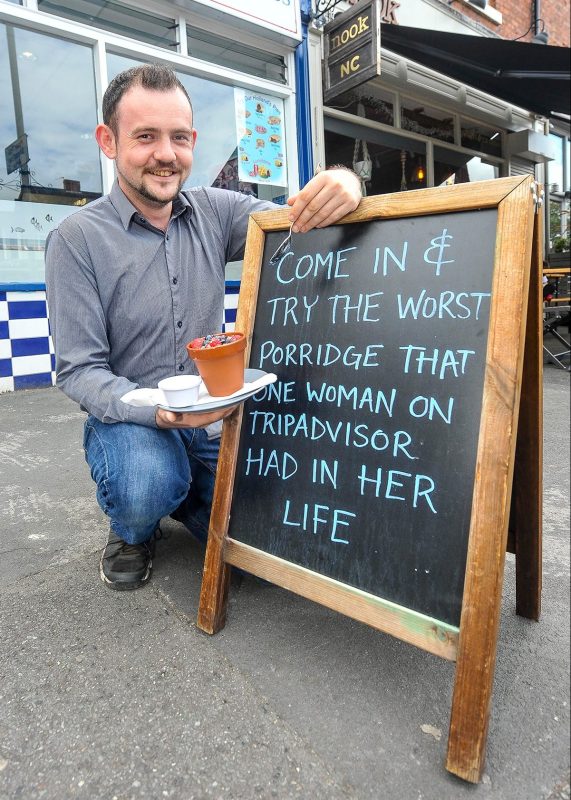 nook
NC
COME IN &
TRY THE WORST
PORRIDGE THAT
ONE WOMAN ON
TRIPADVISOR
HAD IN HER
LIFE